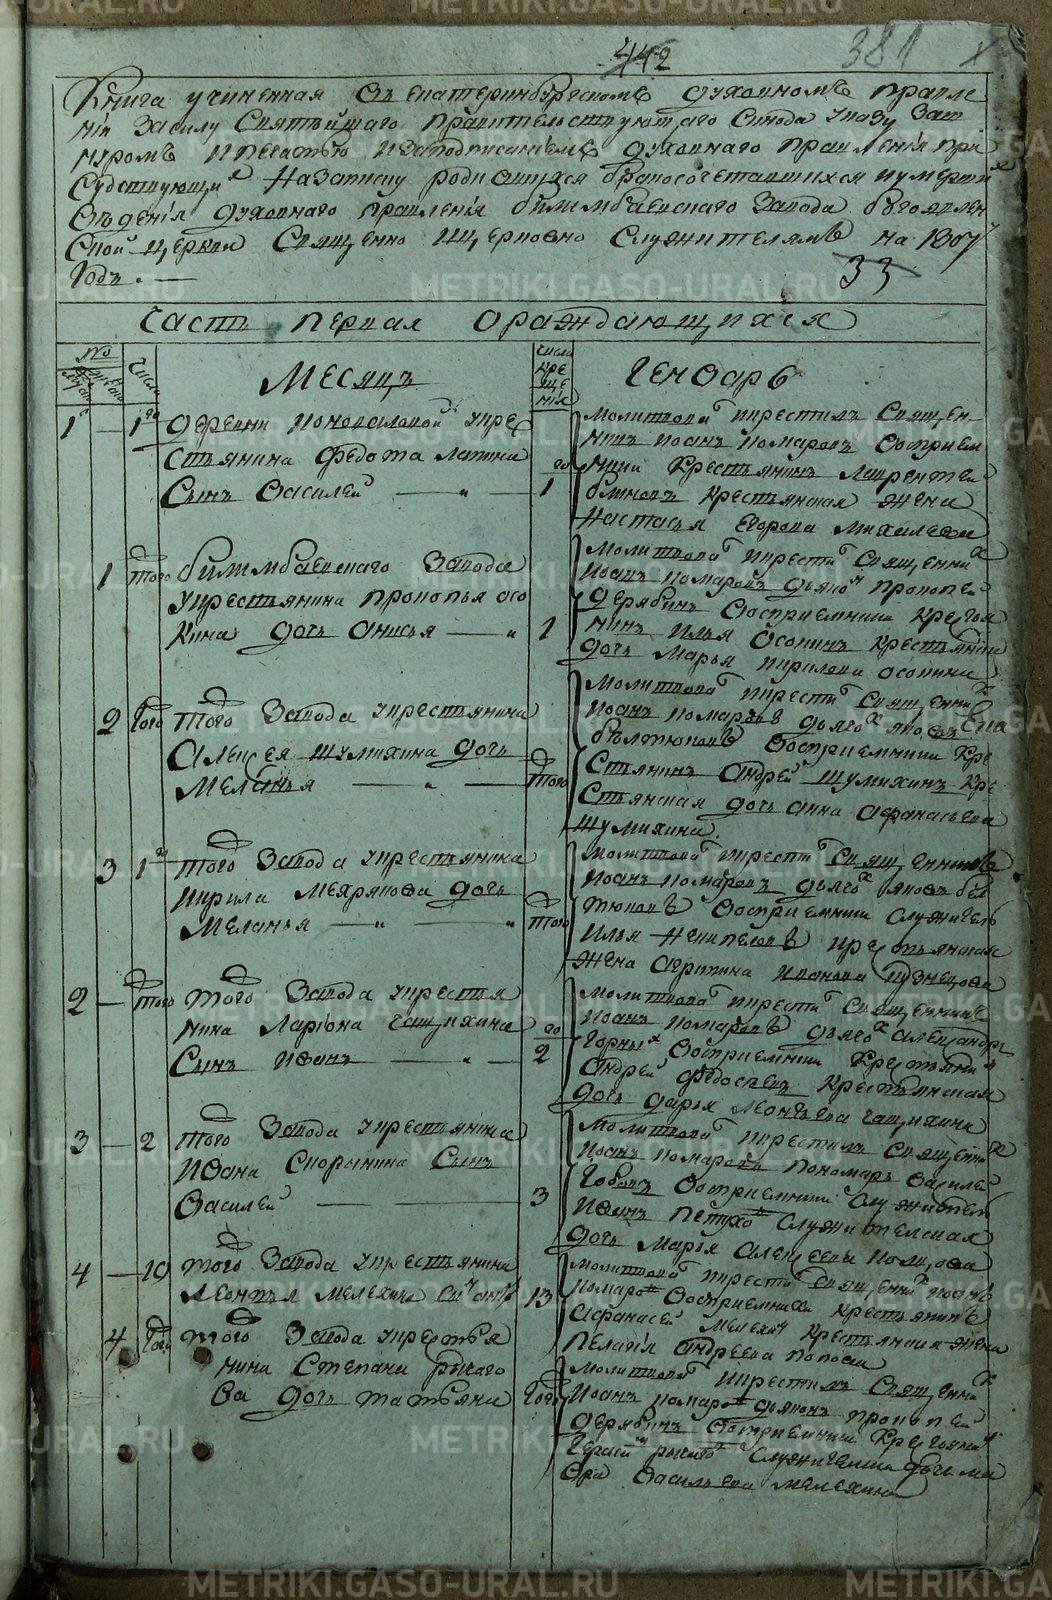 442
381
Книга учиненная въ екатеринбургскомъ духовномъ правле
нiи Засилу Святѣйшаго Правительствующаго Синода Указу Заш
нуромъ Ипечатью Изаподписанiемъ духовнаго правленiя при
судствующихъ Назаписку родившихся бракосочетавшихся иумерши
Свѣденiя духовнаго правленiя билимбаевскаго Завода богоявлен
ской церкви Священно Ицерковно Служителямъ на 1807
Годъ.
33
Часть первая ораждающихся
№
Числа
Месяцъ
Числа кре ще нiя
Генварь
1 1 деревни Коноваловой укре
стьянина Федота Лапина
Сынъ Василей 1
Молитвовалъ икрестилъ Священ
никъ Иоанъ Комаровъ Восприем
ники Крестьянинъ Лаврентей
блиновъ Крестьянская жена
Настасья Егорова Михалева
1 того билимбаевскаго Завода
укрестьянина прокопья осо
кина дочь анисья 1
Молитвовалъ икрестилъ Священникъ
Иоанъ Комаровъ дьяконъ прокопей
дерябинъ Восприемники Крестья
нинъ Илья Осокинъ Крестьянская
дочь Марья Кирилова осокина
2 того того Завода укрестьянина
Алексея Шумихина дочь
Меланья того
Молитвовалъ икрестилъ Священникъ
Иоанъ Комаровъ дьячокъ яковъ
бѣлтюковъ Восприемники Кре
стьянинъ Андрей Шумихинъ Кре
стьянская дочь анна Афанасьева
Шумихина.
3 1 того Завода укрестьянина
Кирила Мехрякова дочь
Меланья того
Молитвовалъ икрестилъ Священникъ
Иоанъ Комаровъ дьячокъ яковъ бѣл
тюковъ Восприемники служитель
Илья крестьянская
жена Агрипина Иванова Кузнецова
2 того того Завода укрестья
нина Ларiона Гащихина
Сынъ Иванъ 2
Молитвовалъ икрестилъ Священникъ
Иоанъ Комаровъ дьячокъ Александръ
Горныхъ Восприемники Крестьянинъ
Андрей Федосѣевъ Крестьянская
дочь дарья Леонтьева Гащихина
3 2 того Завода укрестьянина
Ивана Скорынина Сынъ
Василей 3
Молитвовалъ икрестилъ Священникъ
Иоанъ Комаровъ пономарь Василей
Восприемники Служитель
Иванъ Петуховъ Служительская
дочь Марья Алексеева
4 10 того Завода укрестьянина
Леонтья Мелехина Сынъ 13
Молитвовалъ икрестилъ Священникъ Иоанъ
Комаровъ Восприемники Крестьянинъ
Афанасей Мелехинъ Крестьянская жена
Пелагiя Андреева попова
4 того того Завода укрестья
нина Степана рычаго
ва дочь татьяна того
Молитвовалъ икрестилъ Священникъ
Иоанъ Комаровъ дьяконъ прокопей
дерябинъ Восприемники Крестьянинъ
Служителя дочь Ма
Васильева Мелехина
METRIKI.GASO-URAL.RU